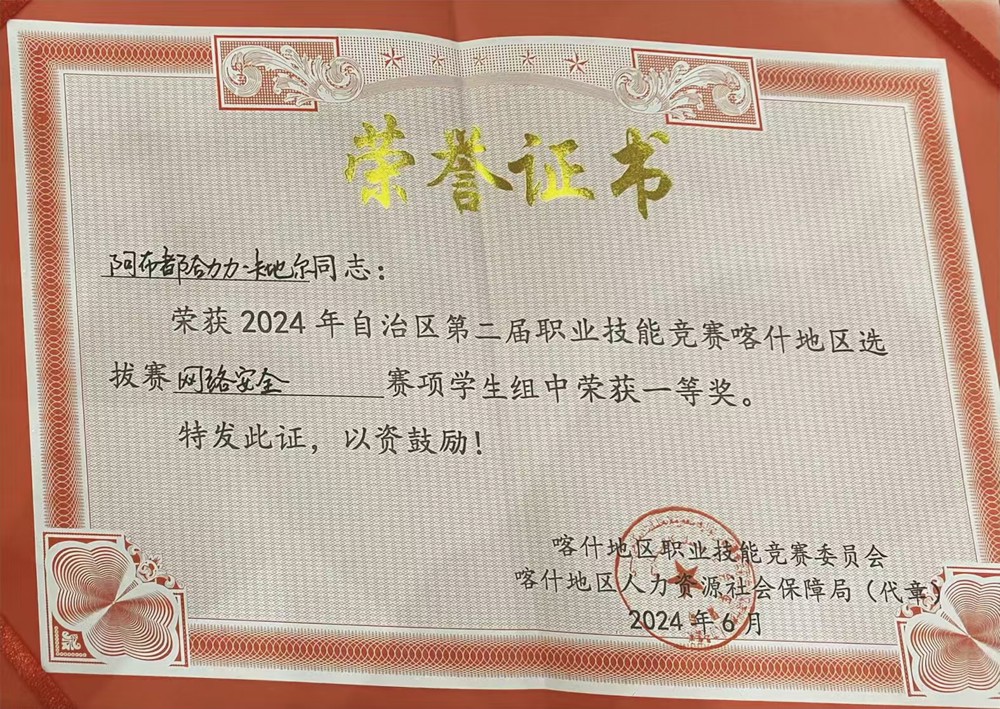 荣誉证书
阿布都哈力力·卡地尔同志：
荣获2024年自治区第二届职业技能竞赛喀什地区选
拔赛网络安全赛项学生组中荣获一等奖。
特发此证，以资鼓励！
喀什地区职业技能竞赛委员会
喀什地区人力资源社会保障局（代章）
2024年6月